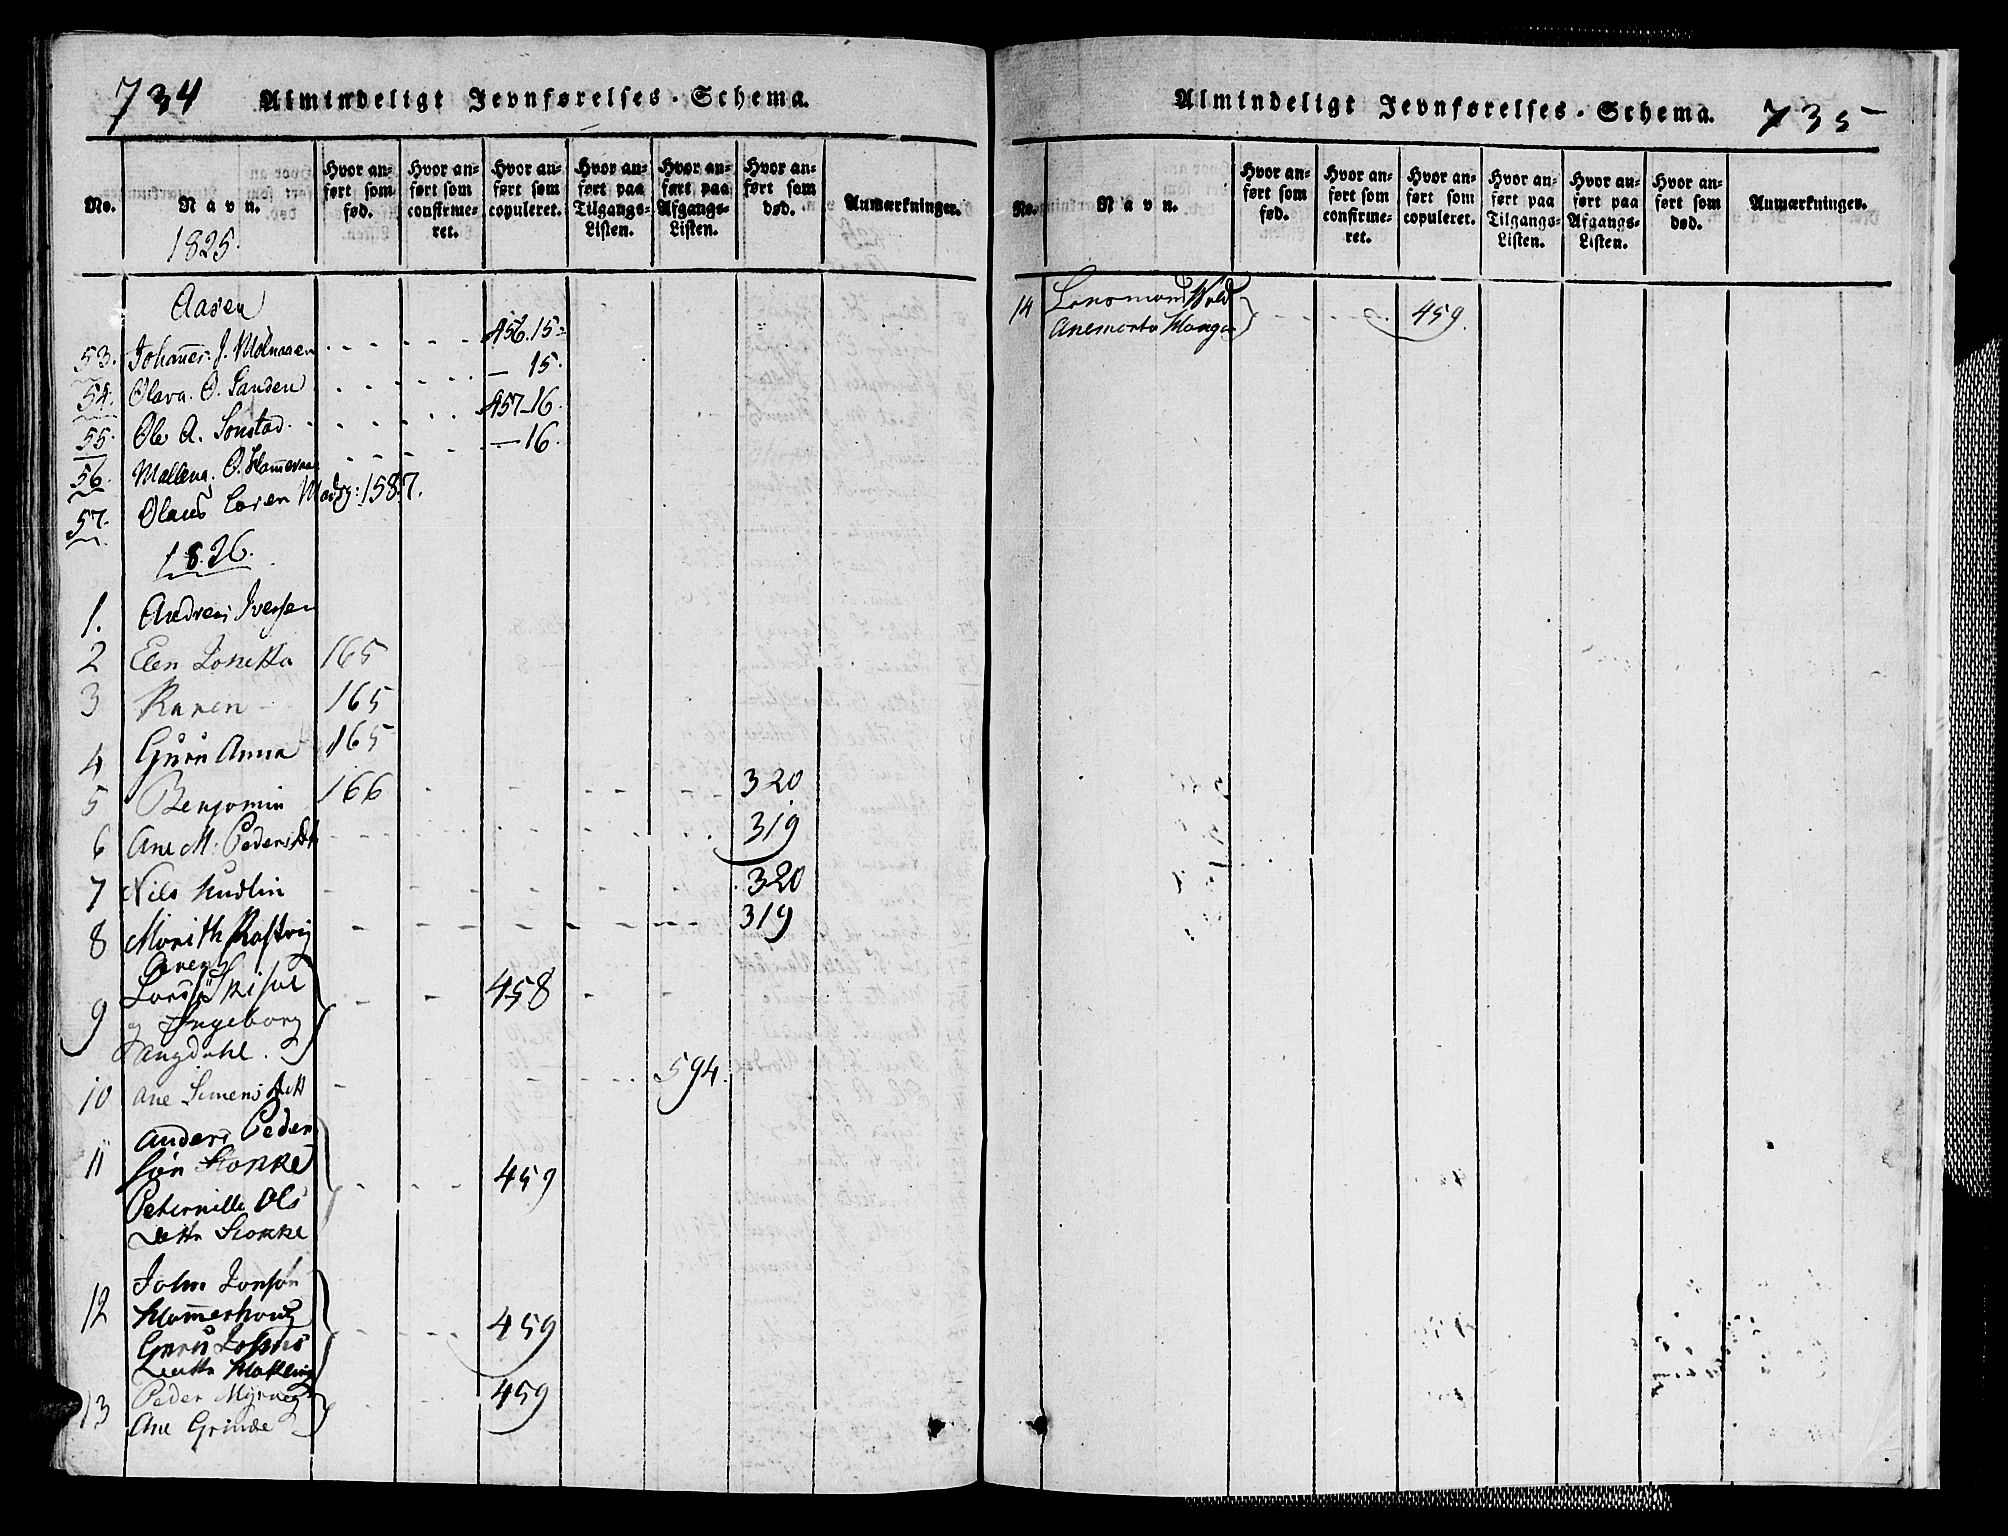 734 Almindeligt Jevnførelses-Schema.
No. Navn. Hvor anført som fød. Hvor anført som confirmeret. Hvor anført som copuleret. Hvor anført paa Tilgangs-Listen. Hvor anført paa Afgangs-Listen. Hvor anført som død. Anmærkninger.
1825.
Aasen
53. Johannes J. Molnaaen 456. 15
54. Olava. O. Sanden — 15.
55. Ole A. Sonstad 457-16.
56. Mallena. O. Hammeraa — 16.
57. Olaus Loren Madsg: 158.7.
1826.
1. Andreas Iversen
2 Elen Jonetta 165
3 Karen 165
4 Guru Anna 165
5 Benjomin 166 320
6 Ane M. Peders Dtt 319
7 Nils 320
8 Morith 319
9 Lars 458
og Ingeborg
Langdahl.
10 Ane Simens Dtt 594.
11 Anders Peder
søn Stokke 459
Peternille Ols
Dettr Stokke
12 John Jonsøn
Hammerhoug 459
Guru Johns
Dattr
13 Peder Myrneg 459
Ane Grinde
Almindeligt Jevnførelses-Schema. 735
No. Navn. Hvor anført som fød. Hvor anført som confirmeret. Hvor anført som copuleret. Hvor anført paa Tilgangs-Listen. Hvor anført paa Afgangs-Listen. Hvor anført som død. Anmærkninger.
14 Wold
Anemarta Hougan 459.